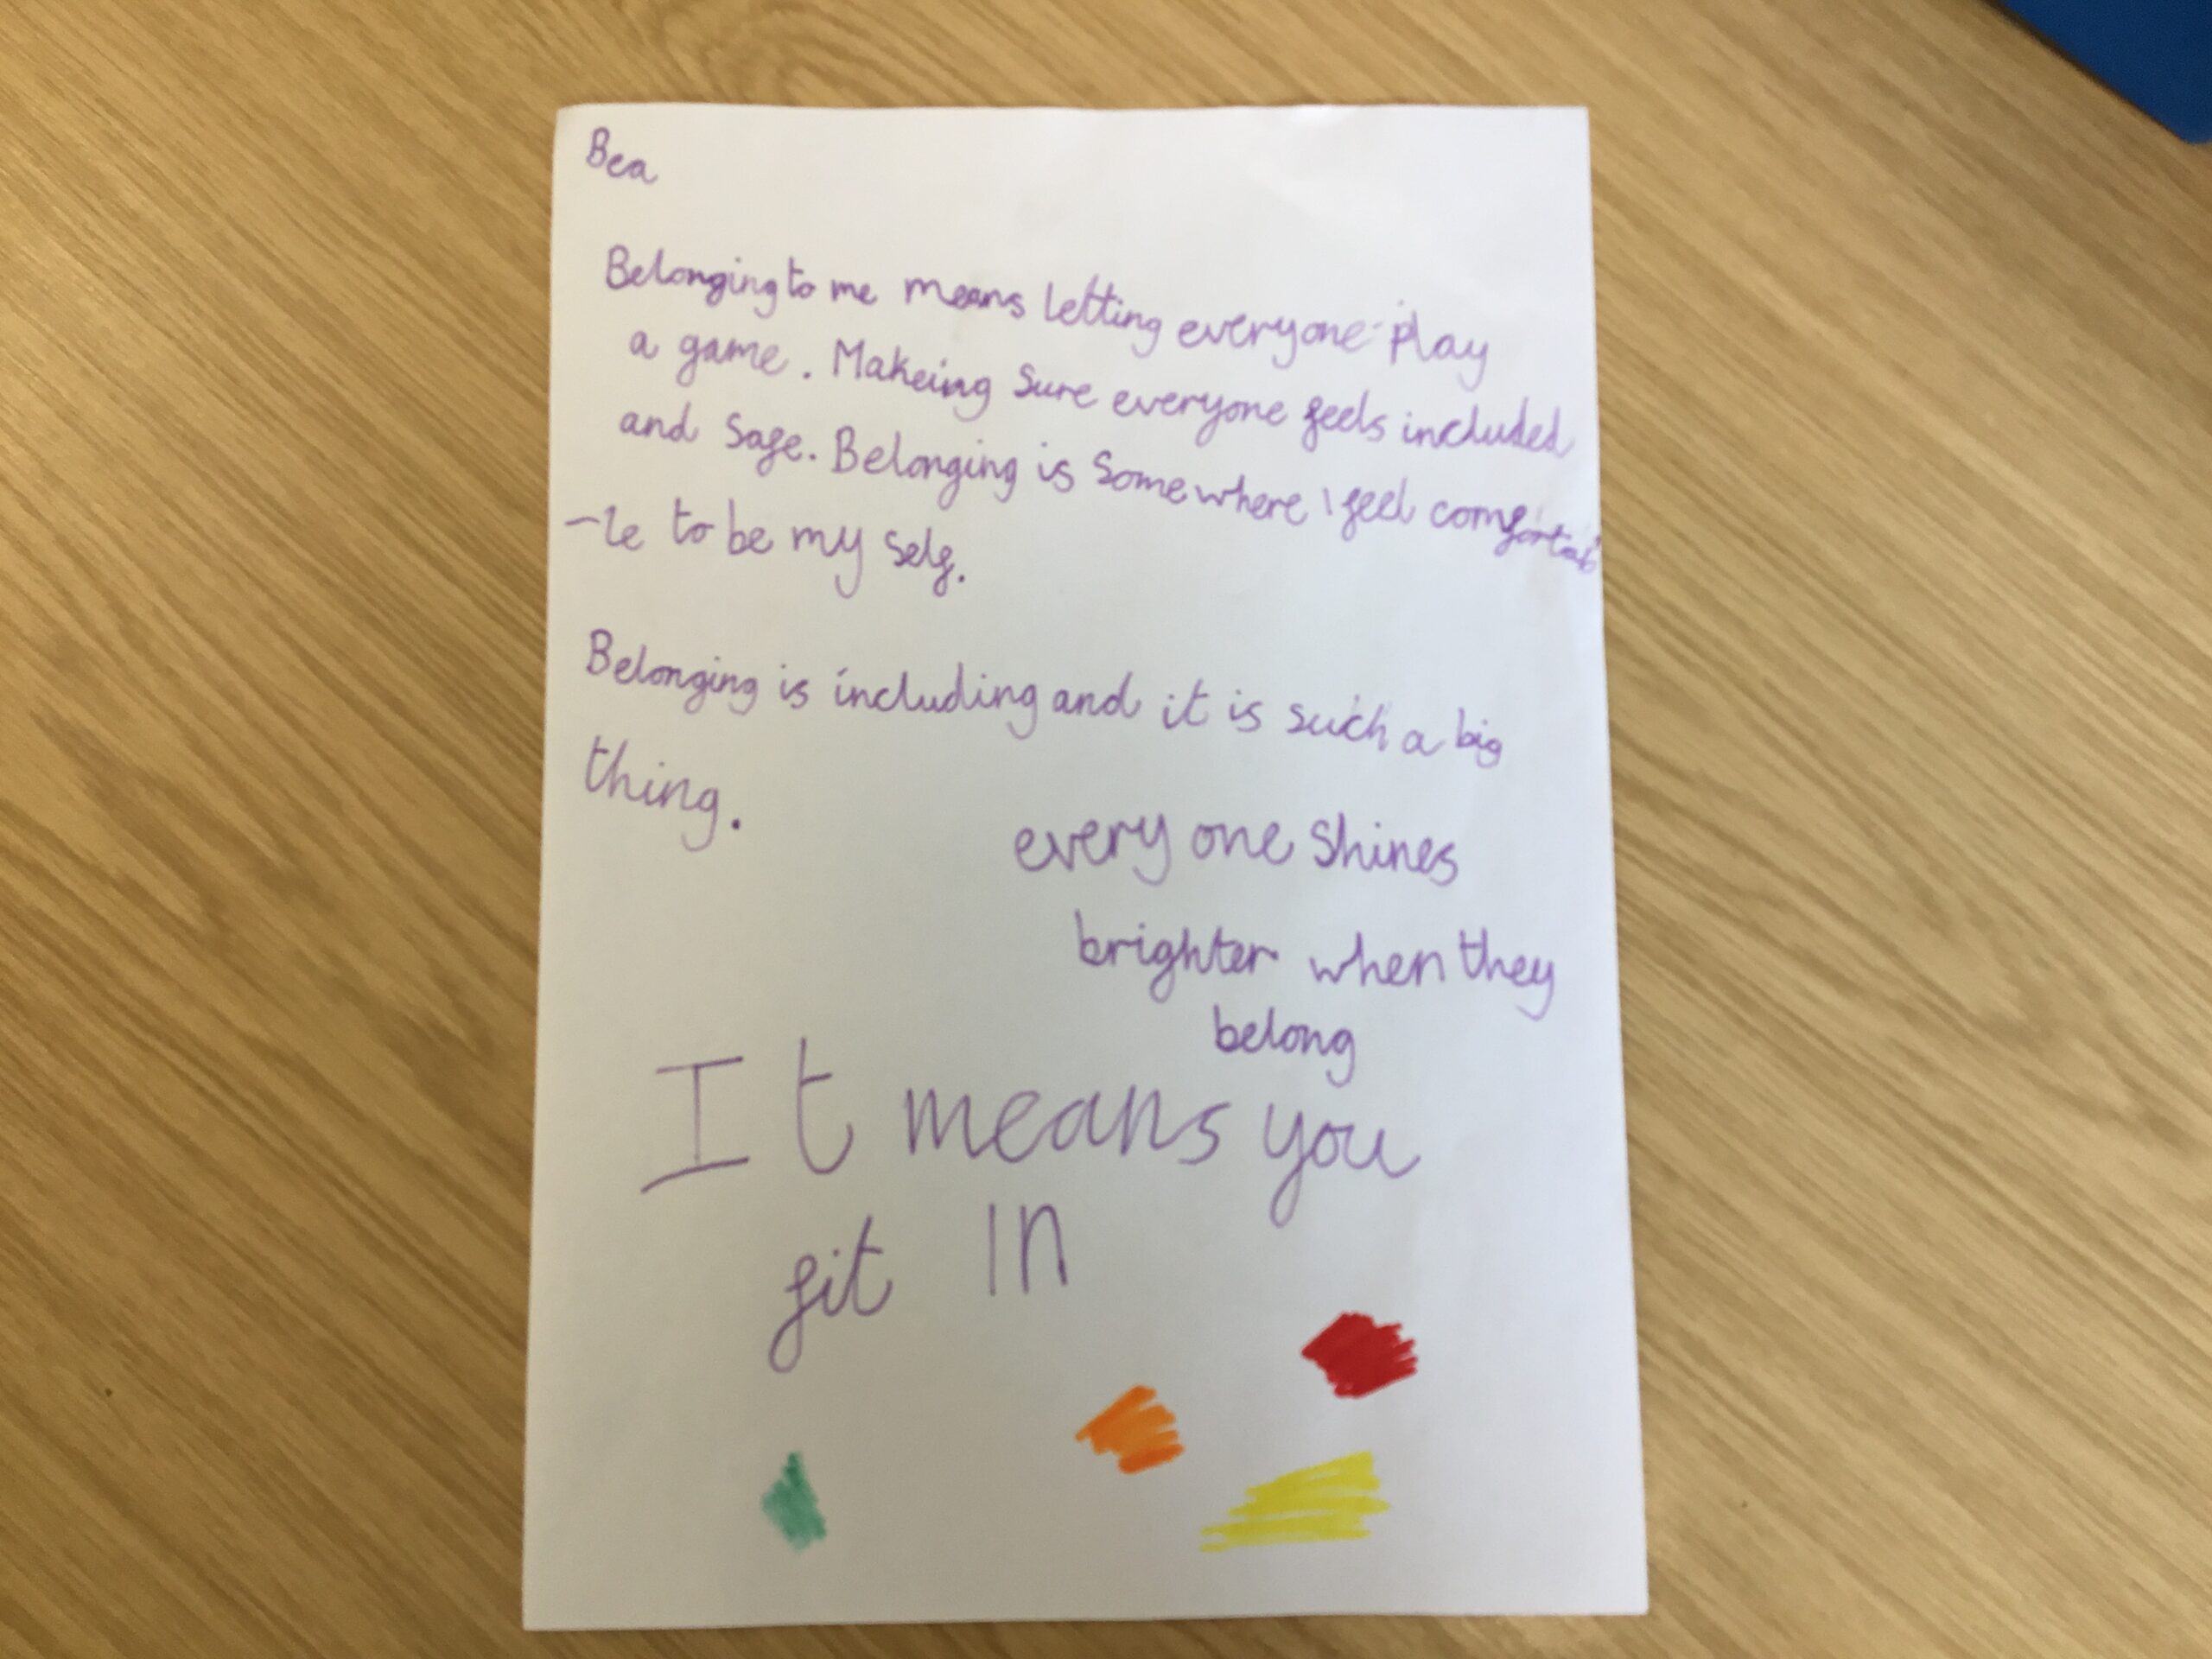 Bea
Belonging to me means letting everyone play
a game. Makeing sure everyone feels included
and safe. Belonging is somewhere I feel comfortab
-le to be my self.
Belonging is including and it is such a big
thing.
every one shines
brighter when they
belong
It means you
fit in